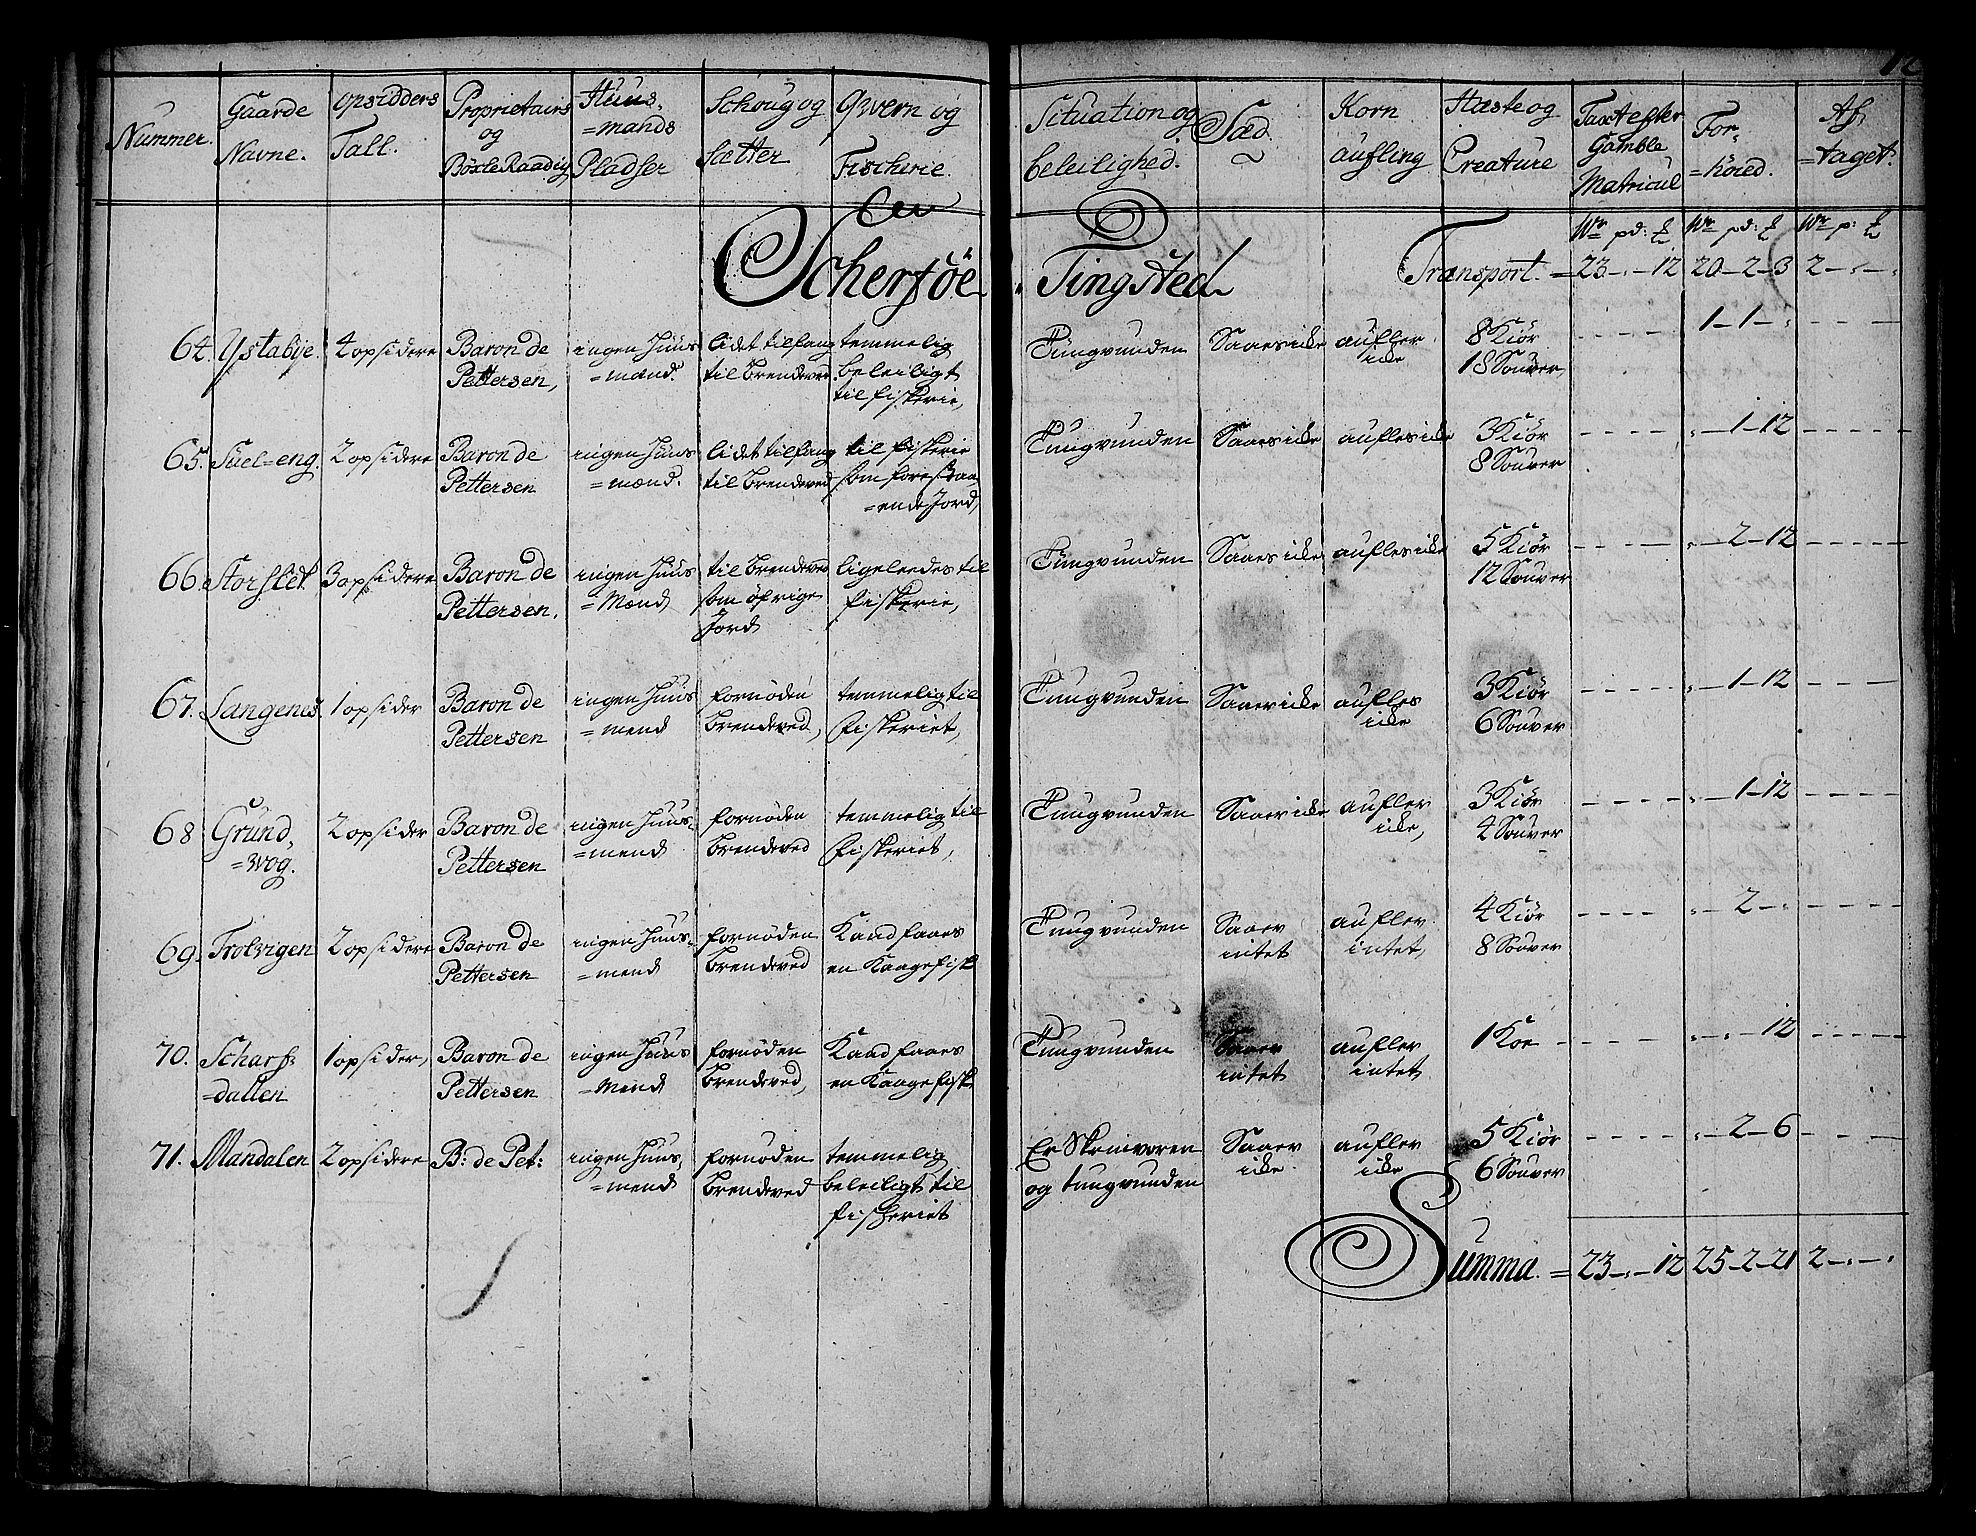 Nummer.
Gaarde Navne.
opsidders Tall.
Proprietairs og Böxle Raadig
Huus=mands Pladser
Schoug og Sætter
Qvern og Fischerie.
Situation og beleilighed.
Sæd
Korn aufling
Hæste og Creature
Taxt efter Gamble Matricul
For=höied.
Af=taget.
Scherföe Tingsted
Transport.
W pd: W pd: W p:
= 23 - - 12 20 - 2 - 3 2 - - -
64. Ystabye. 4 opsidere Baron de Pettersen, ingen Huus=mænd. lidet tilfang til brendeved temmelig beleiligt til fiskerie,
Tungvunden Saaes icke aufler icke 8 Kiör 18 Souver, 1 - 1 -
65. Suel=eng. 2 opsidere Baron de Pettersen ingen Huus=mænd. lidet tilfang til brendeved til fiskerie som forestaa=ende Jord,
Tungvunden Saaes icke aufles icke 3 Kiör 8 Souver - 1 - 12
66 Storslet. 3 opsidere Baron de Pettersen. ingen Huus=Mænd til brendeved som öfrige Jord ligeleedes til fiskerie,
Tungvunden Saaes icke aufles icke 5 Kiör 12 Souver - 2 - 12
67. Langenes. 1 opsider Baron de Pettersen ingen Huus=mend fornöden brendeved, temmelig til fiskeriet,
Tungvunden Saaer icke aufles icke 3 Kiör 6 Souver - 1 - 12
68 Grund,=wog. 2 opsider Baron de Pettersen ingen Huus=mend fornöden brendeved temmelig til fiskeriet,
Tungvunden Saaer icke aufler icke, 3 Kiör 4 Souver - 1 - 12
69. Trolvigen 2 opsidere Baron de Pettersen ingen Huus=mend fornöden brendeved Kand faaes en Kaagefisk
Tungvunden Saaer intet aufler intet, 4 Kiör 8 Souver - 2 -
70. Scharf=dallen 1 opsider, Baron de Pettersen ingen Huus=Mend fornöden brendeved, Kand faaes en Kaagefisk
Tungvunden Saaer intet aufler intet 1 Koe - - 12
71. Mandalen 2 opsidere B: de Pet: ingen Huus=mend fornöden brendeved temmelig beleiligt til fiskeriet
Er Skrinvoren og tungvunden Saaer icke. aufler icke 5 Kiör 6 Souver - 2 - 6
Summa. = 23 - - 12 25 - 2 - 21 2 - - -